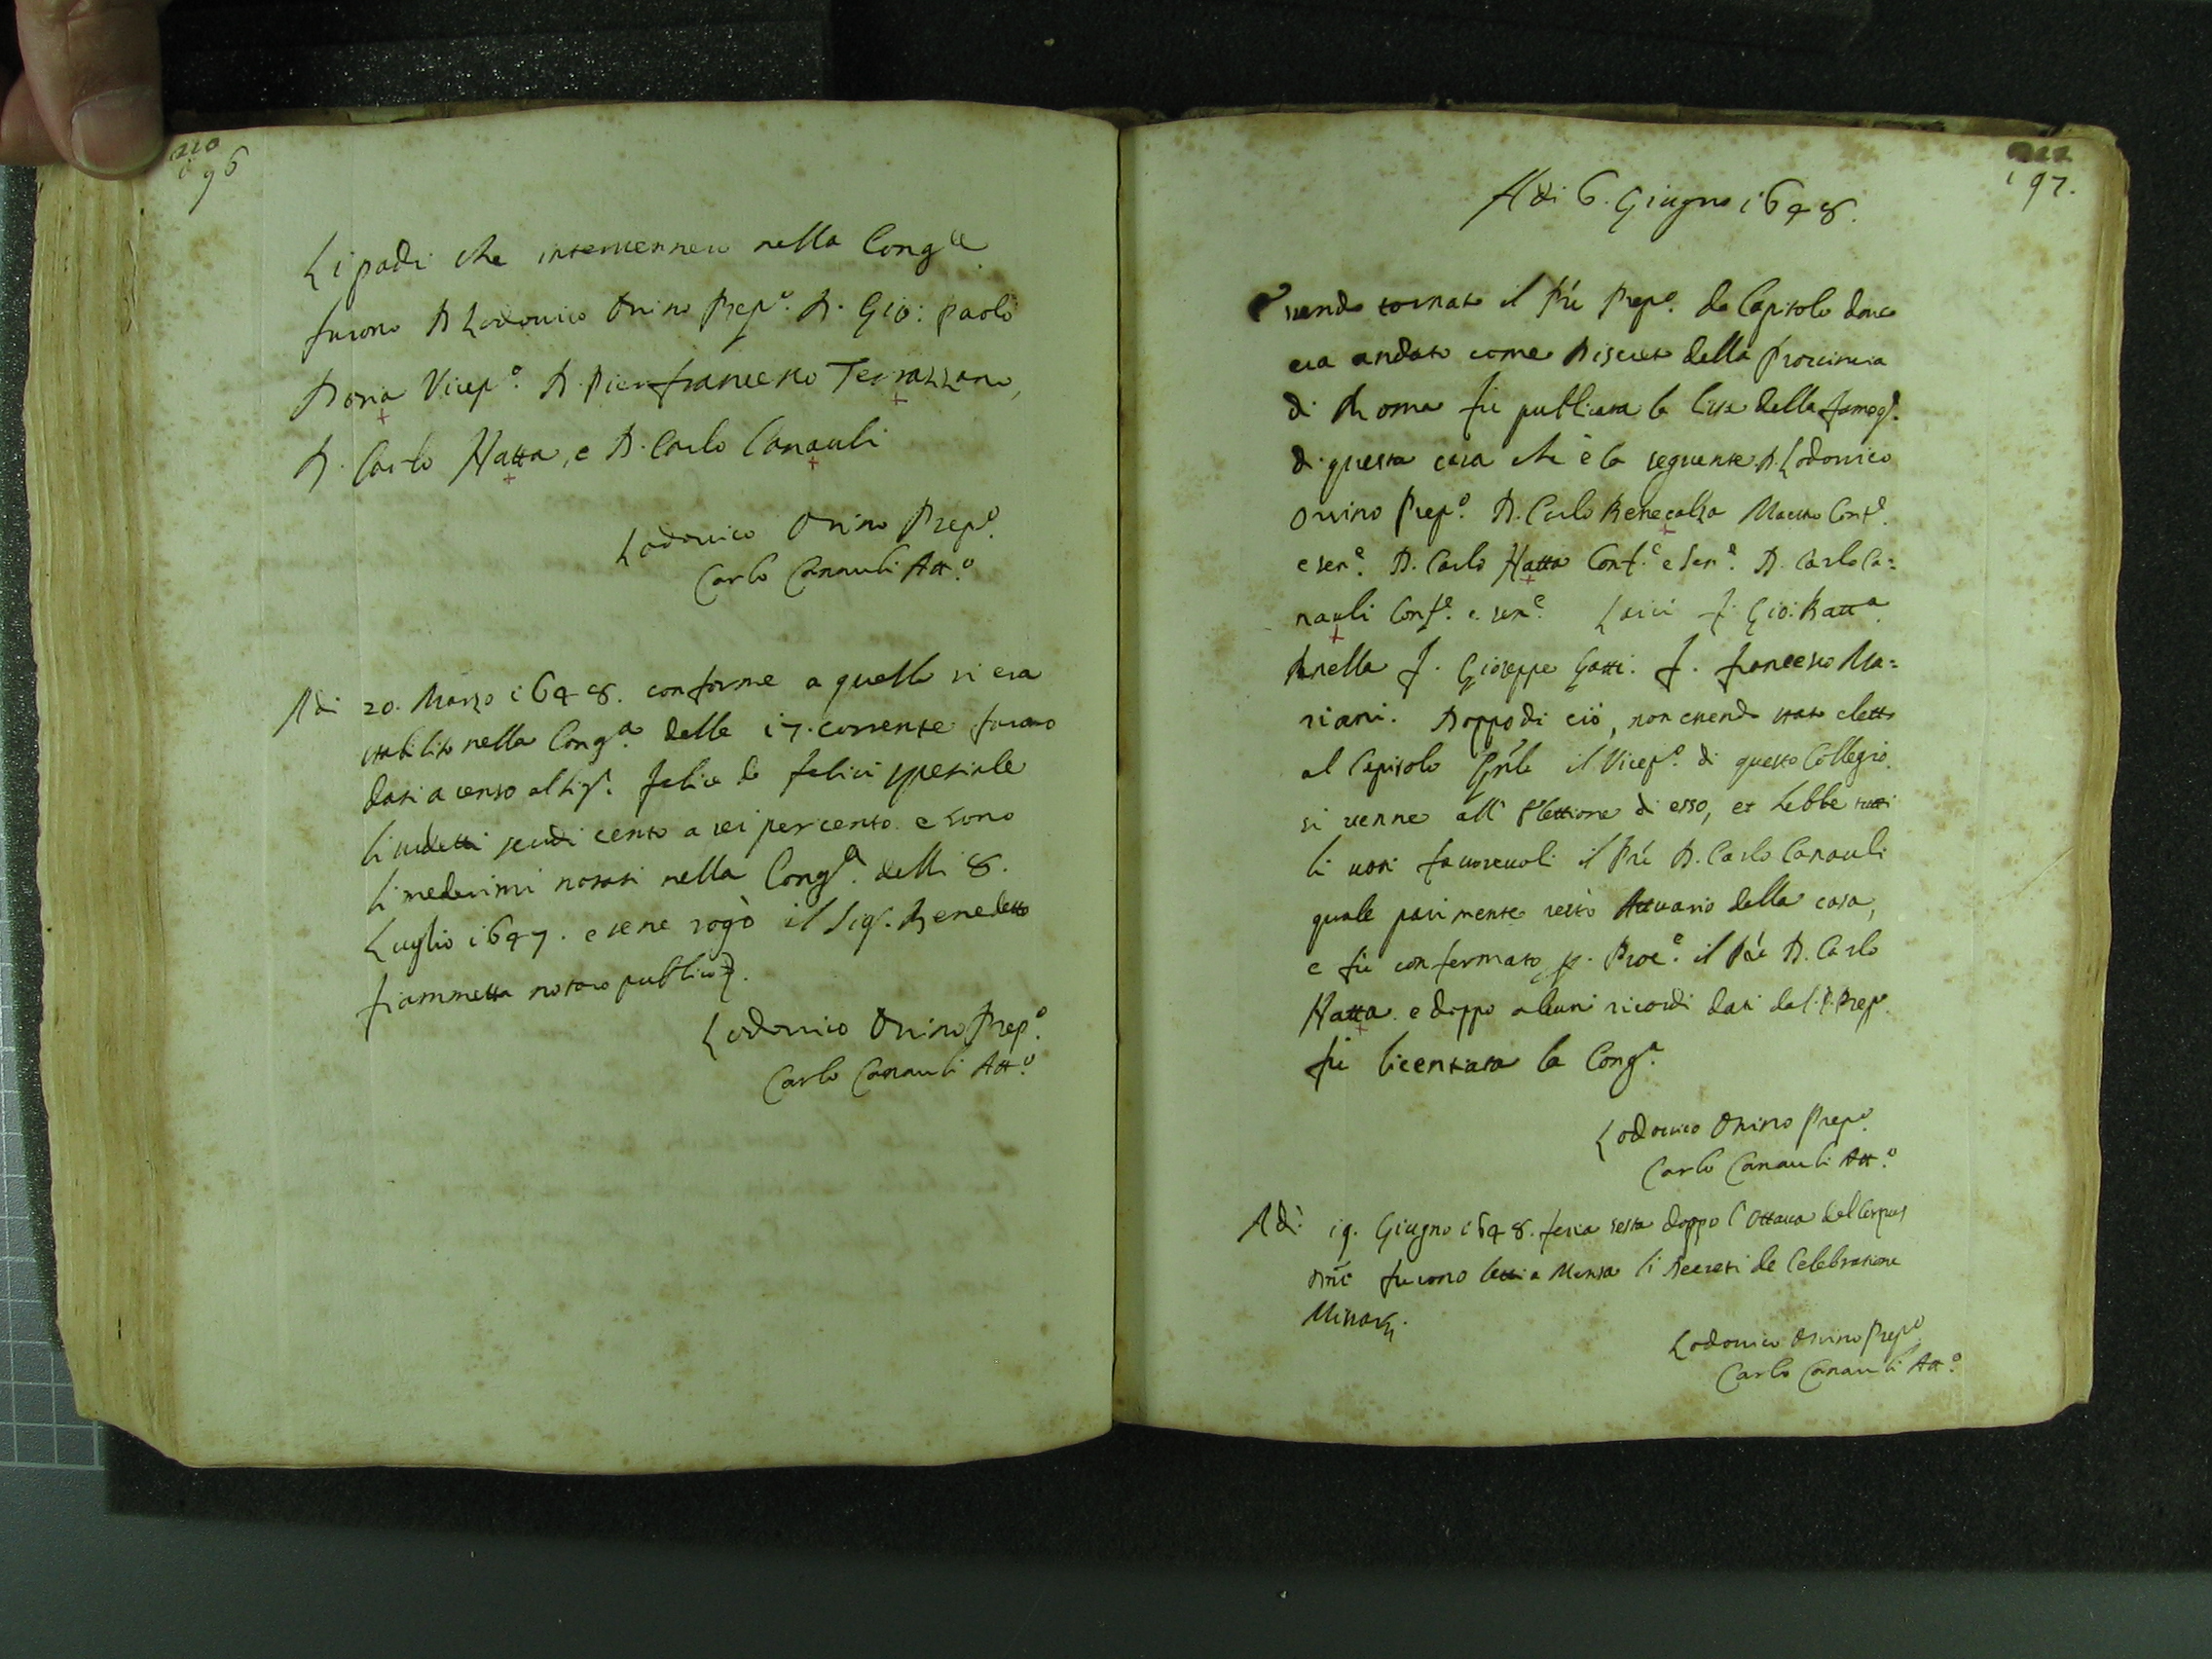 210
196
Li padri che intervennero nella Cong.ne
furono D. Lodovico Orsino Prep.o D. Gio: Paolo
Doria Vicep.o D. Pierfrancesco Terrazzano,
D. Carlo Natta, e D. Carlo Canauli
Lodovico Orsino Prep.o
Carlo Canauli Att.o
Adi 20. Marzo 1648. conforme a quello si era
stabilito nella Cong.a delle 17. corrente furono
dati a censo al Sig.r Felice de Felici spetiale
li sudetti scudi cento a sei per cento e sono
li medesimi notati nella Cong.a delli 8.
Luglio 1647. e se ne rogò il Sig.r Benedetto
fiammetta notaro publico.
Lodovico Orsino Prep.o
Carlo Canauli Att.o
197.
Adi 6. Giugno 1648.
Essendo tornato il Prê Prep.o da Capitolo dove
era andato come Discreto della Provincia
di Roma fu publicata la lista della famog.a
di questa casa che è la seguente D. Lodovico
Orsino Prep.o D. Carlo Benecalza Maestro Conf.e
e ser.e D. Carlo Natta Conf.e e Ser.e D. Carlo Ca=
nauli Conf.e e ser.e Laici f. Gio: Batt.a
f. Gioseppe Gatti. f. francesco Ma=
riani. Doppo di ciò, non essendo stato eletto
al Capitolo Gnle il Vicep.o di questo Collegio
si venne all' Elettione di esso, et hebbe tutti
li voti favorevoli il Prê D. Carlo Canauli
quale parimente restò Attuario della casa,
e fù confermato p. Proc.e il Prê D. Carlo
Natta e doppo alcuni ricordi dati dal P. Prep.o
fù licentiata la Cong.a
Lodovico Orsino Prep.o
Carlo Canauli Att.o
Adi 19. Giugno 1648. feria sesta doppo l'Ottava del Corpus
Dñi furono letti a Mensa li Decreti de Celebratione
Missarum.
Lodovico Orsino Prep.o
Carlo Canauli Att.o